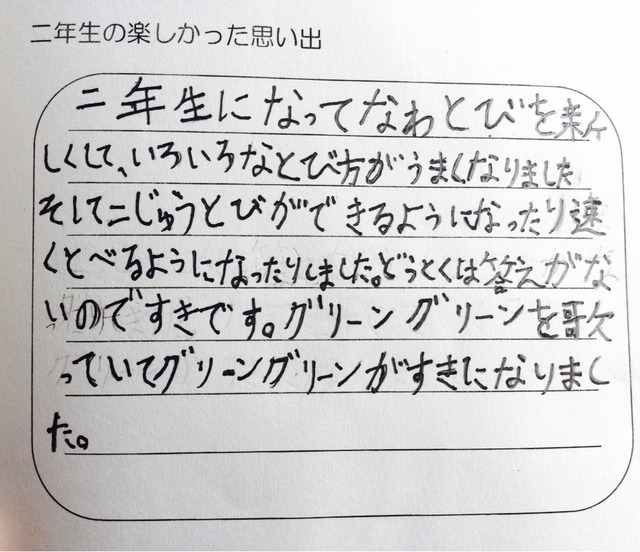 二年生の楽しかった思い出
二年生になってなわとびを新
しくして、いろいろなとび方がうまくなりました
そして二じゅうとびができるようになったり速
くとべるようになったりしました。どうとくは答えがな
いのですきです。グリーングリーンを歌
っていてグリーングリーンがすきになりまし
た。